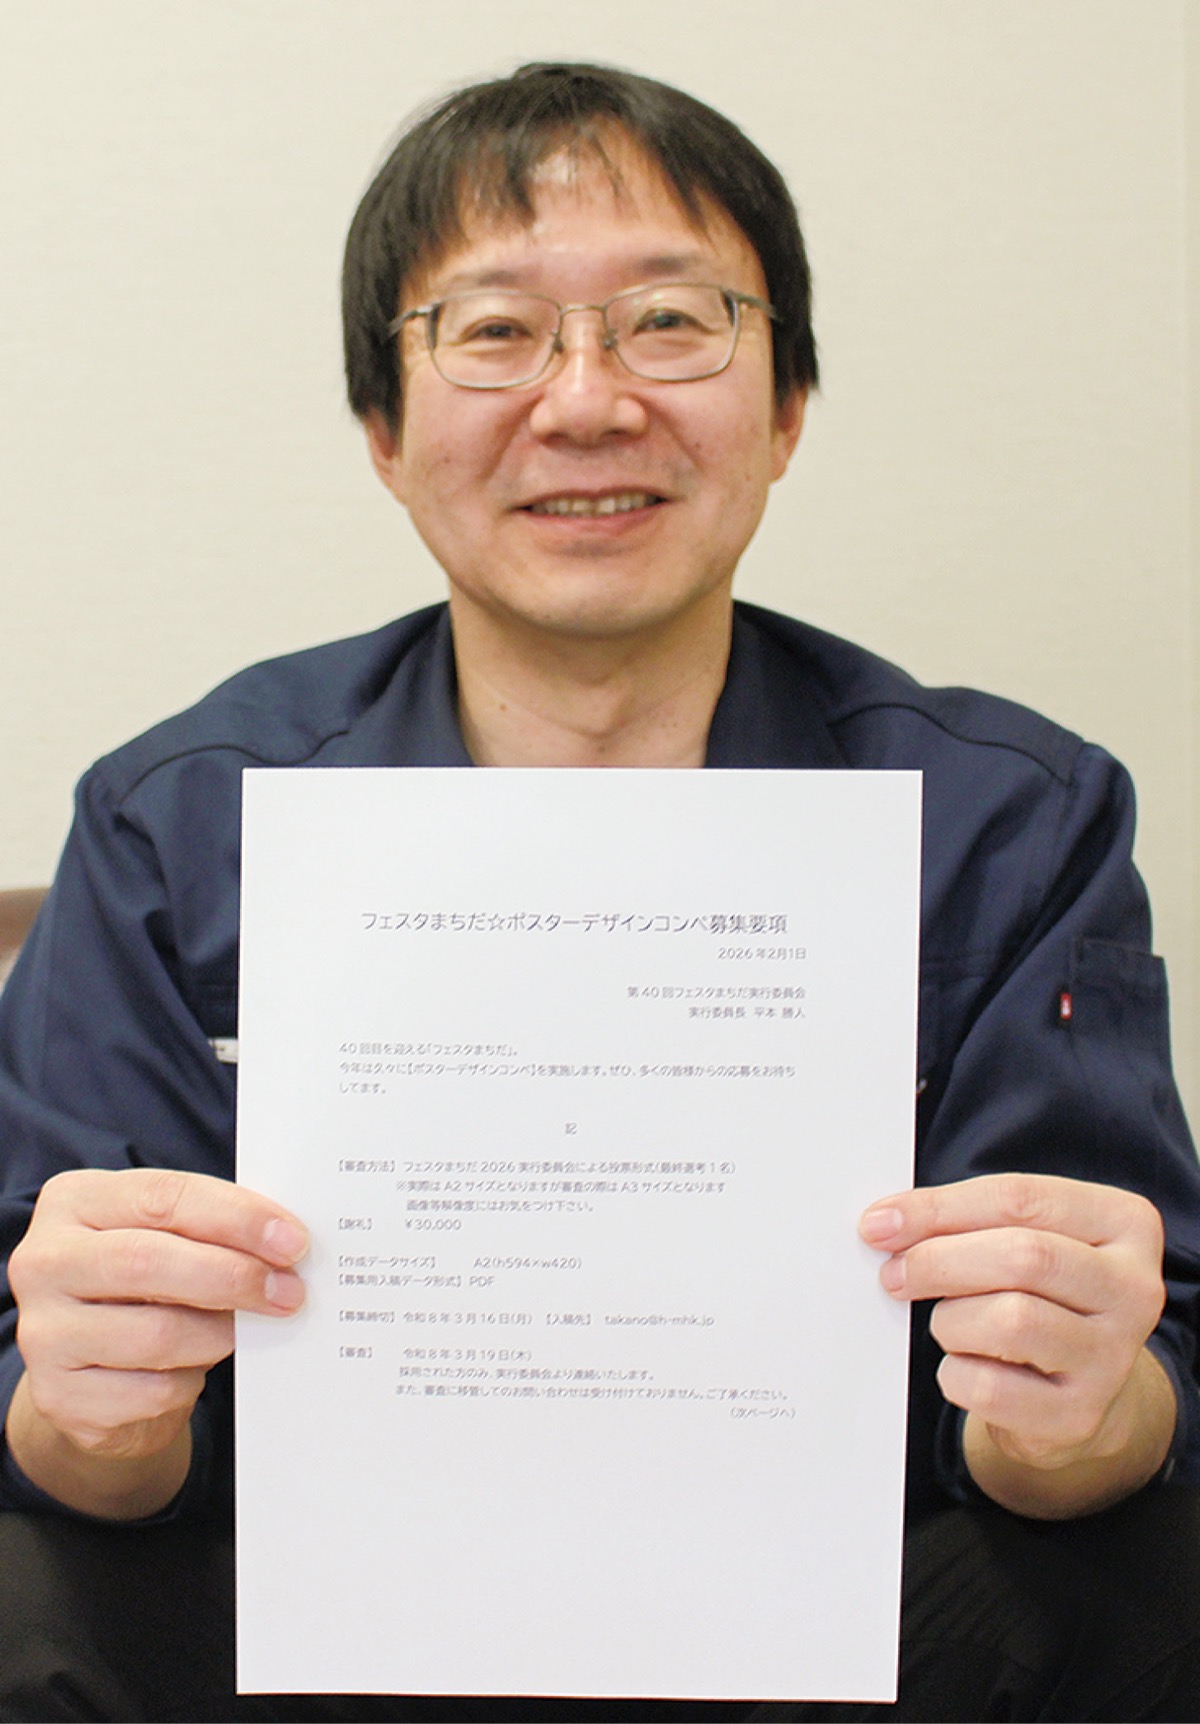 フェスタまちだ☆ポスターデザインコンペ募集要項
2026年2月1日
第40回フェスタまちだ実行委員会
実行委員長 平本 勝人
40回目を迎える「フェスタまちだ」。
今年は久々に【ポスターデザインコンペ】を実施します。ぜひ、多くの皆様からの応募をお待ち
してます。
記
【審査方法】 フェスタまちだ2026実行委員会による投票形式(最終選考1名)
※実際はA2サイズとなりますが審査の際はA3サイズとなります
画像等解像度にはお気をつけ下さい。
【謝礼】 ¥30,000
【作成データサイズ】 A2(h594×w420)
【募集用入稿データ形式】 PDF
【募集締切】 令和8年3月16日(月) 【入稿先】 takano@h-mhk.jp
【審査】 令和8年3月19日(木)
採用された方のみ、実行委員会より連絡いたします。
また、審査に移管してのお問い合わせは受け付けておりません。ご了承ください。
(次ページへ)